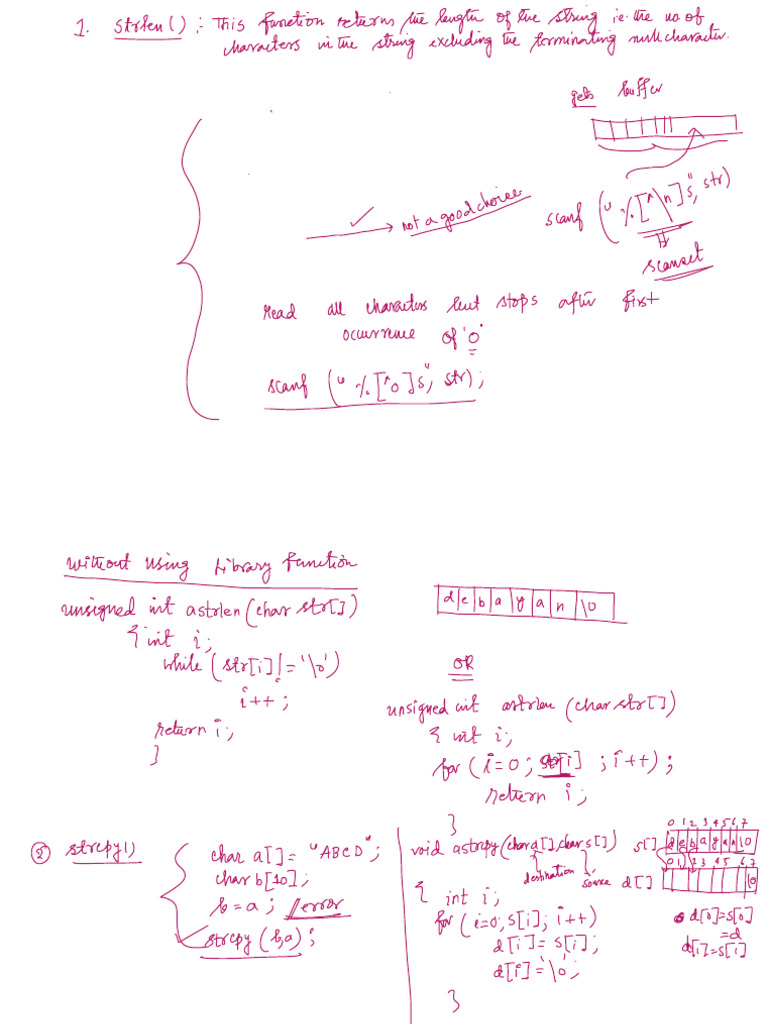 1. strlen() :- This function returns the length of the string ie. the no of
characters in the string excluding the terminating null character.
gets buffer
not a good choice
scanf ("%[^\n]s", str)
scanset
read all characters but stops after first
occurrence of 'o'
scanf ("%[^o]s", str);
Without using Library function
unsigned int astrlen (char str[])
{ int i;
while (str[i] != '\0')
i++;
return i;
}
d e b a y a n \0
OR
unsigned int astrlen (char str[])
{ int i;
for (i=0; str[i] ; i++);
return i;
}
② strcpy()
char a[] = "ABCD";
char b[10];
b = a; //error
strcpy (b,a);
void astrcpy (char d[], char s[])
destination source
{ int i;
for (i=0; s[i]; i++)
d[i] = s[i];
d[i] = '\0';
}
0 1 2 3 4 5 6 7
s[] d e b a y a n \0
0 1 2 3 4 5 6 7
d[] \0
d[0]=s[0]
=d
d[1]=s[1]